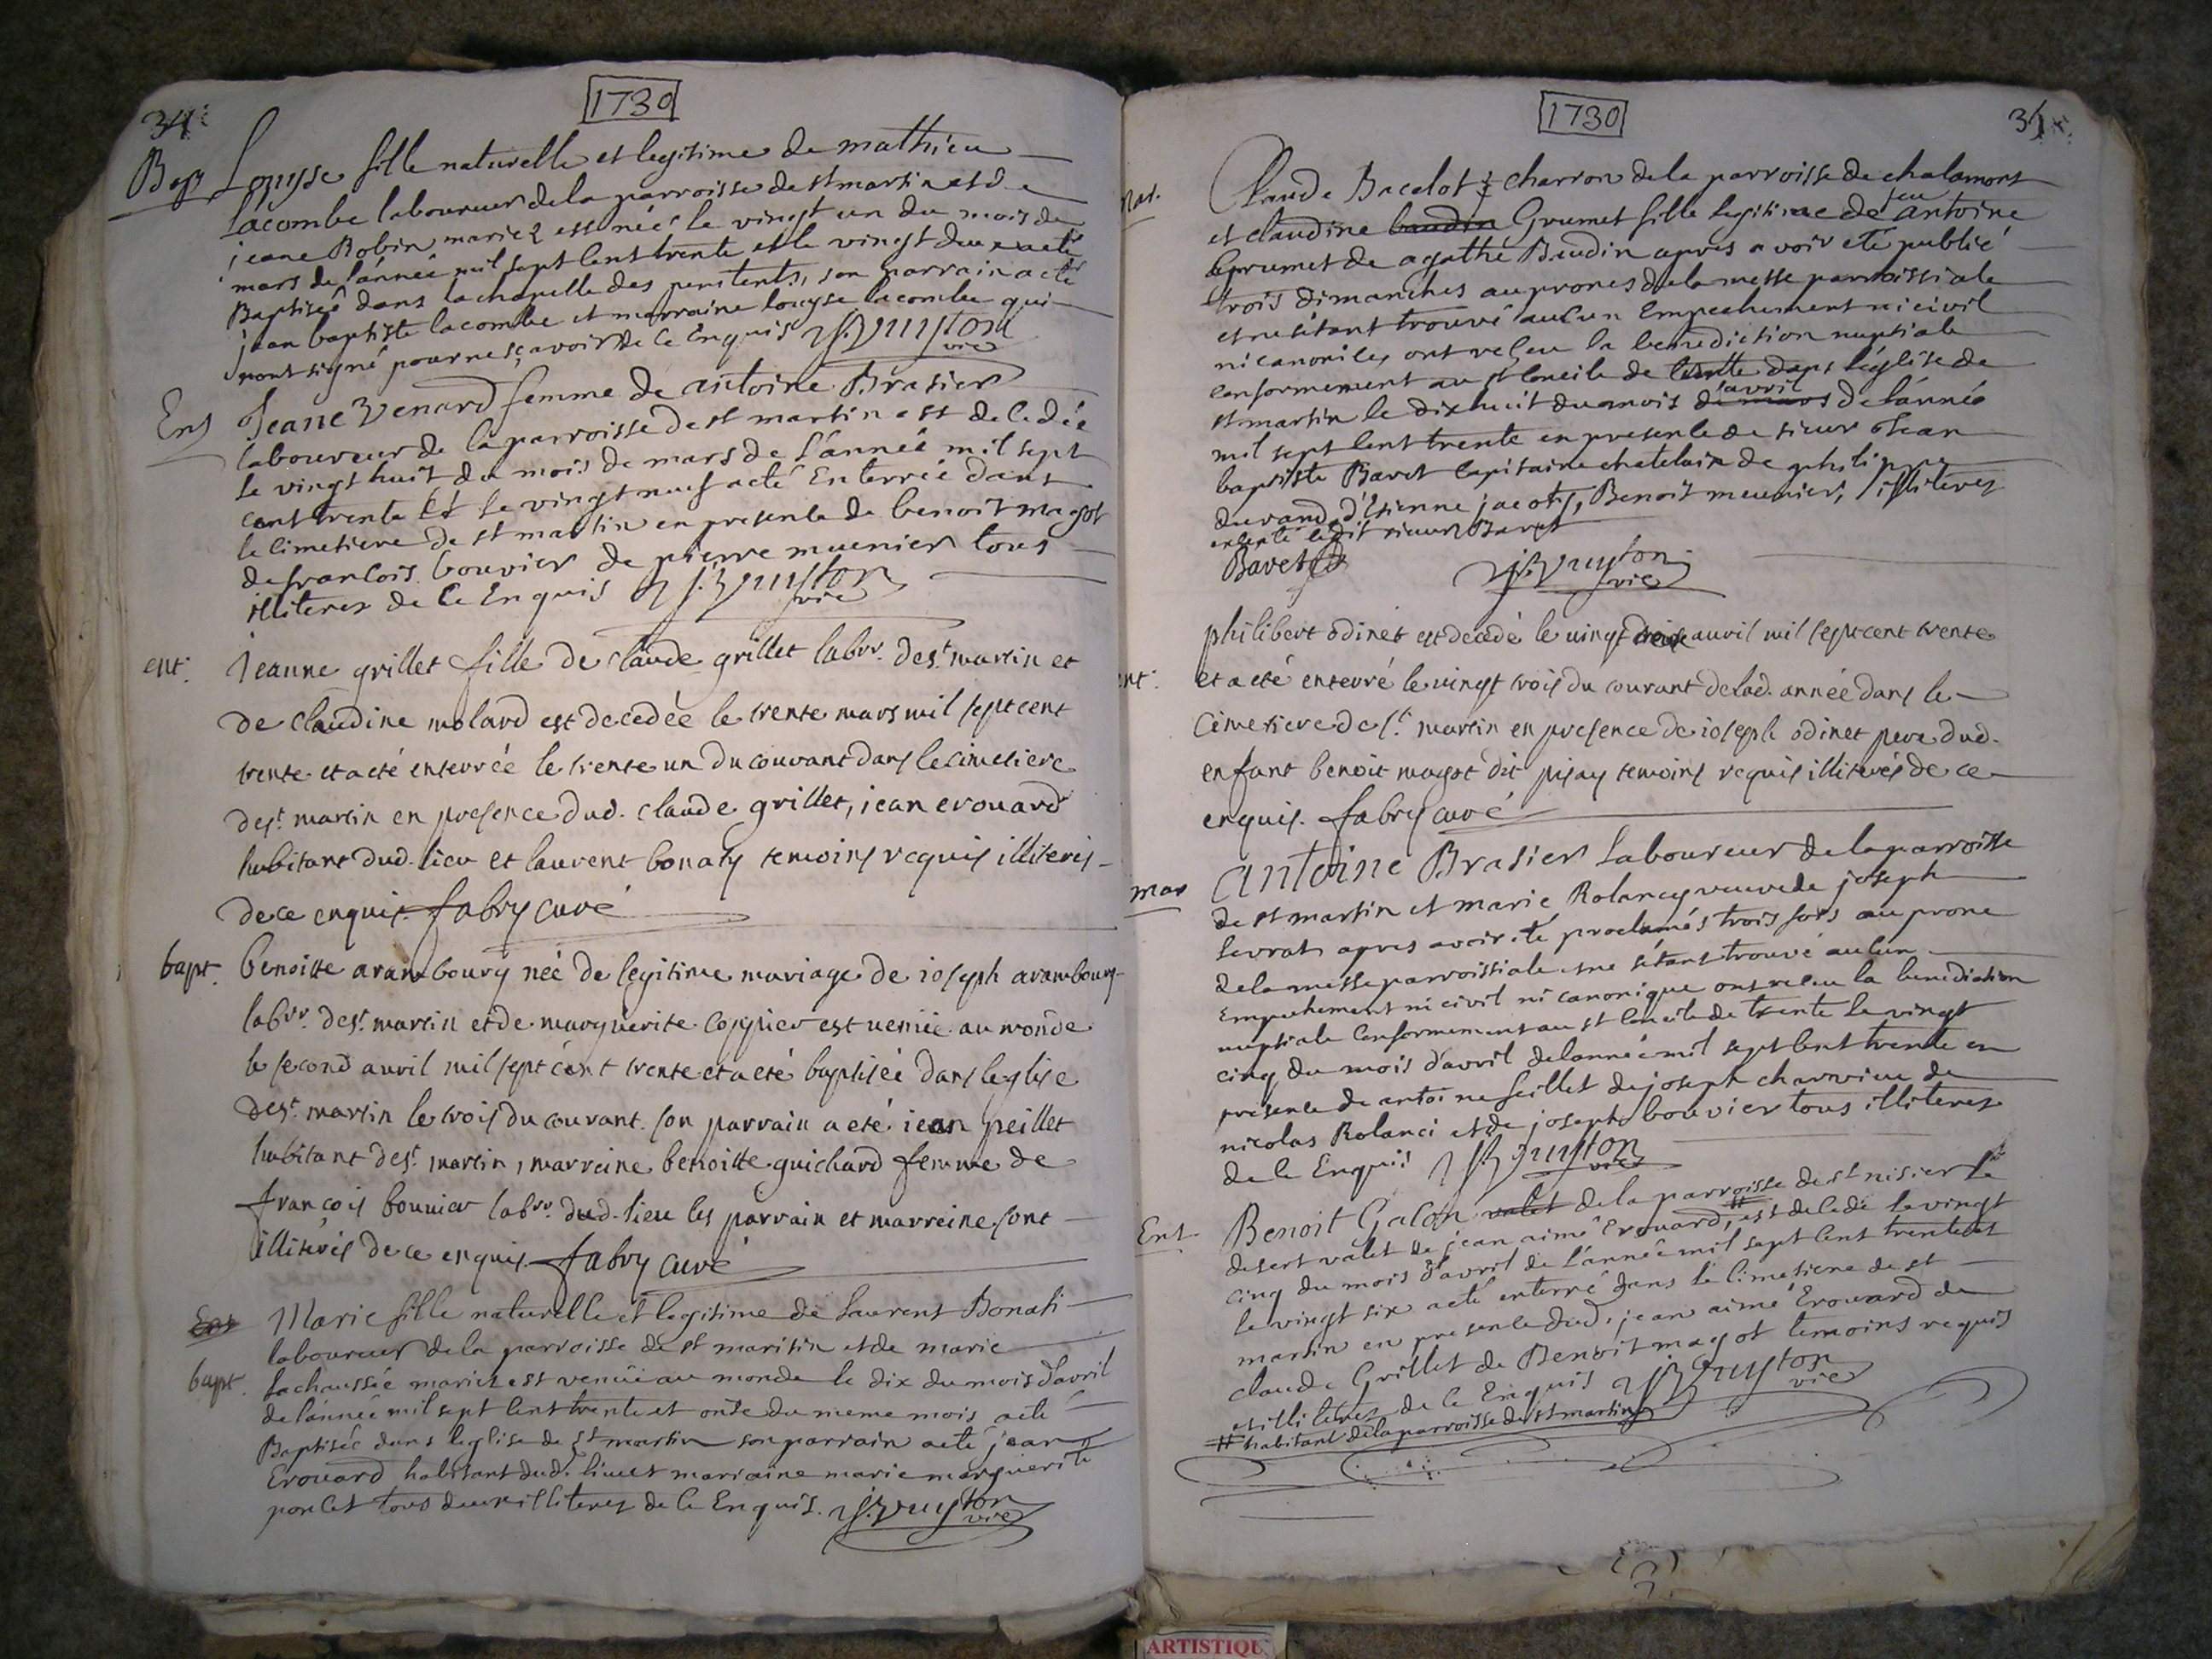 1730
34
Bap Louyse fille naturelle et legitime de mathieu
Lacombe laboureur dela parroisse de st martin et de
jeane Robin mariez est née le vingt un du mois de
mars de l'année mil sept cent trente et le vingt deux acté
Baptisée dans la chapelle des penitents, son parrain a eté
jean baptiste lacombe et marraine louyse lacombe qui
nont signé pour ne sçavoir de ce Enquis
vic
Ent Jeane Venard femme de antoine Brasier
laboureur de la parroisse de st martin est decedée
le vingt huit du mois de mars de L'année mil sept
cent trente Et le vingt neuf acté Enterrée dans
le cimetiere de st martin en presence de benoit magot
de francois bouvier de pierre muenier tous
illiterez de ce Enquis
vic
ent. Jeanne grillet fille de claude grillet labr. de st. martin et
de claudine molard est decedée le trente mars mil sept cent
trente et a eté enterrée le trente un du courant dans le cimetiere
de st. martin en presence dud. claude grillet, jean erouard
habitant dud. lieu et laurent bonaty temoins requis illiterés
de ce enquis. fabry curé
bapt. benoitte arambourg née de legitime mariage de ioseph arambourg
labr. de st. martin et de marguerite coppier est venüe au monde
le second auril mil sept cent trente et a eté baptisée dans leglise
de st. martin le trois du courant. son parrain a eté iean peillet
habitant de st. martin, marreine benoitte guichard femme de
françois bouuier labr. dud. lieu les parrain et marreine sont
illiterés de ce enquis. fabry curé
Ent Marie fille naturelle et legitime de Laurent Bonati
laboureur de la parroisse de st martin et de marie
bapt. Lachaussée mariez est venüe au monde le dix du mois d'avril
de l'année mil sept cent trente et onse du meme mois acté
Baptisée dans leglise de st martin son parrain acté jean
Erouard habitant dud. lieu et marraine marie marguerite
poncet tous deux illiterez de ce Enquis.
vic
1730
mar. Claude Bacelot charron de la parroisse de chalamont
et claudine baudin Grumet fille legitime de feu antoine
grumet de agathe Baudin apres avoir eté publié
trois dimanches au prones de la messe parroissiale
et ne s'étant trouvé aucun Empechement ni civil
ni canonices ont reçeu la benediction nuptiale
conformement au st concile de trente dans l'église de
st martin le dix huit du mois de mars d'avril de l'année
mil sept cent trente en presence de sieur Jean
baptiste Bavet capitaine chatelain de philippe
durand, d'Etienne jacot, Benoit meunier, illiterez
excepté ledit sieur Bavet
Bavet
vic
philibert odinet est decedé le vingt deux auril mil sept cent trente
ent. et a eté enterré le vingt trois du courant de lad. année dans le
cimetiere de st. martin en presence de ioseph odinet pere dud.
enfant benoit magot dit pisay temoins requis illiterés de ce
enquis. fabry curé
mar Antoine Brasier Laboureur de la parroisse
de st martin et marie Rolancy veuve de joseph
sevrat apres avoir eté proclamés trois fois au prone
de la messe parroissiale et ne s'étant trouvé aucun
Empechement ni civil ni canonique ont receu la benediction
nuptiale Conformement au st concile de trente Le vingt
cinq du mois d'avril de lannée mil sept cent trente en
presence de antoine feillet de joseph charvieu de
nicolas Rolanci et de joseph bouvier tous illiterez
de ce Enquis
vic
Ent Benoit Galon valet de la parroisse de st nisier le
desert valet de jean aimé Erouard, # est decedé le vingt
cinq du mois d'avril de l'année mil sept cent trente et
le vingt six acté enterré dans le cimetiere de st
martin en presence dud. jean aimé Erouard de
claude Grillet de Benoit magot temoins requis
et illiterez de ce Enquis
vic
# habitant de la parroisse de st martin
ARTISTIQU